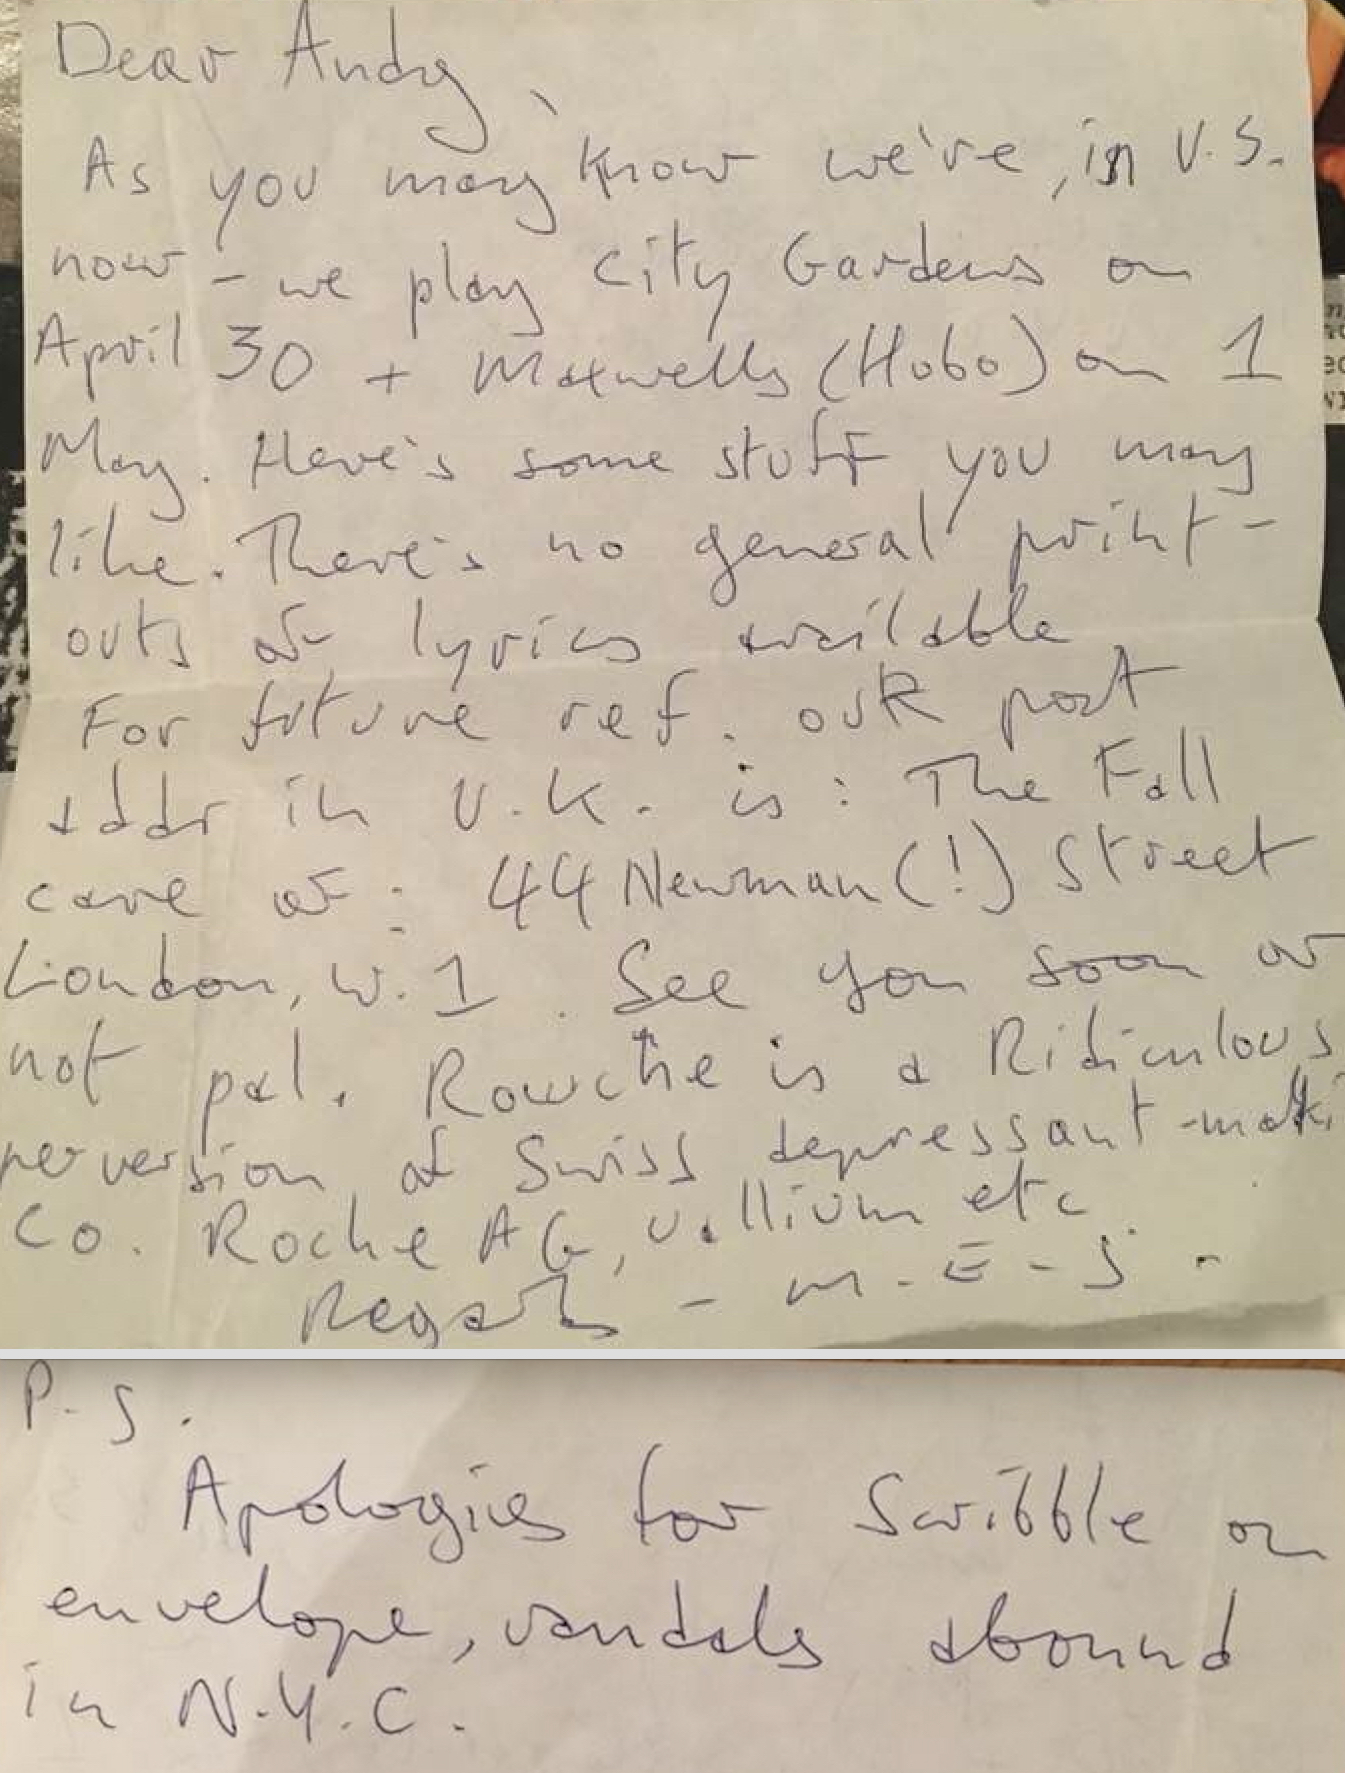 Dear Andy,
As you may know we've, in U.S.
now - we play City Gardens on
April 30 + Maxwells (Hobo) on 1
May. Here's some stuff you may
like. There's no general print-
outs of lyrics available
For future ref. ouR post
addr in U.K. is: The Fall
care of: 44 Newman (!) Street
London, W.1. See you soon or
not pal. Rowche is a Ridiculous
perversion of Swiss depressant-maki
Co. Roche AG, vallium etc.
Regards - M.E-S.
P-S.
Apologies for Scribble on
envelope, vandals abound
in N.Y.C.